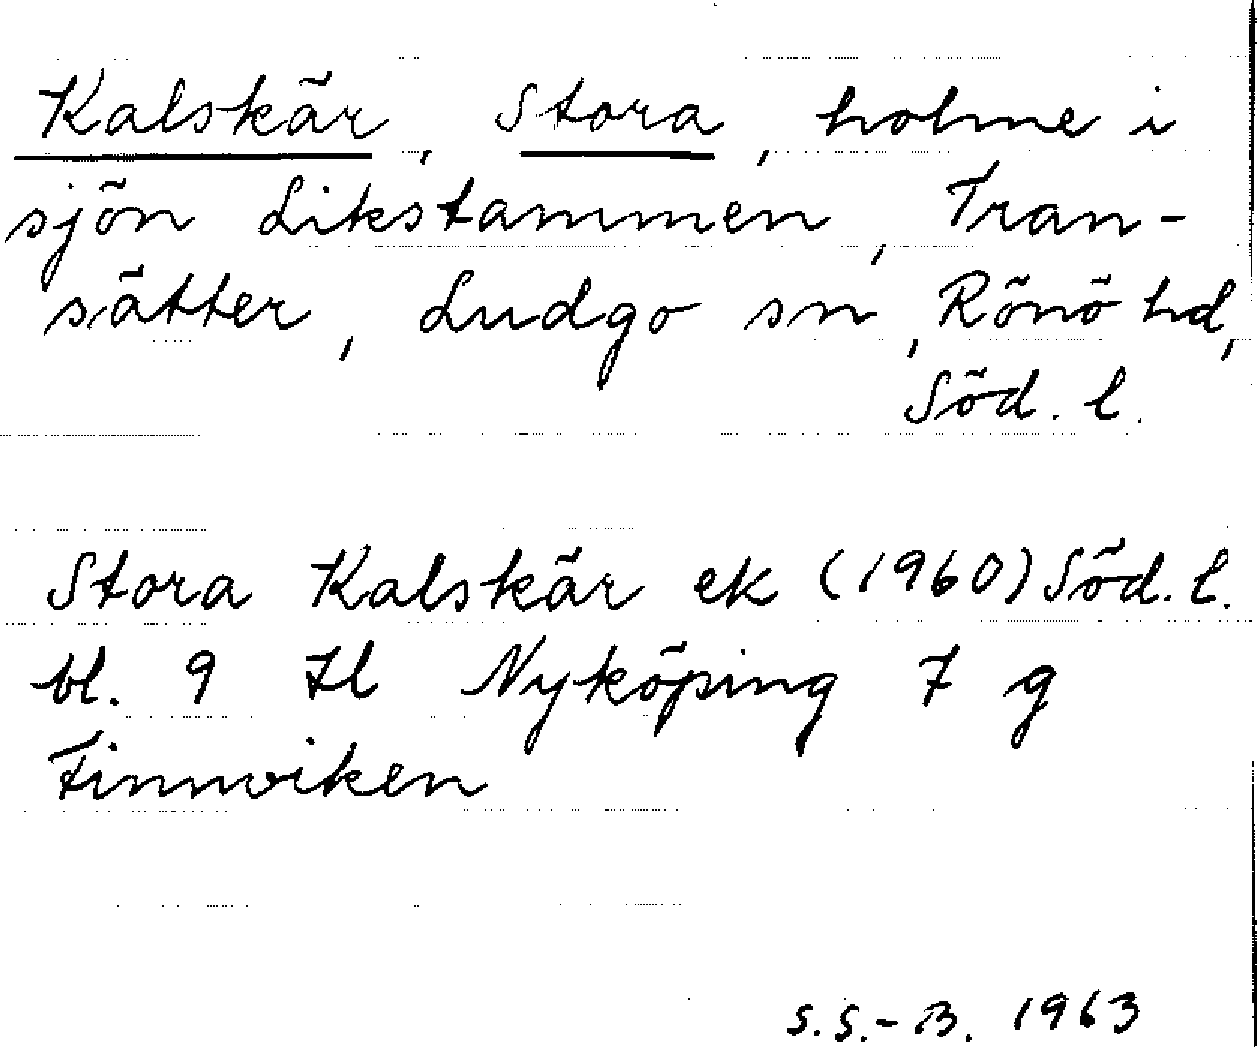 Kalskär, Stora, holme i
sjön Likstammen, Tran-
sätter, Ludgo sn, Rönö hd,
Söd. l.
Stora Kalskär ek (1960) Söd. l.
bl. 9 Il Nyköping 7 g
Finnviken
S.S.-B. 1963